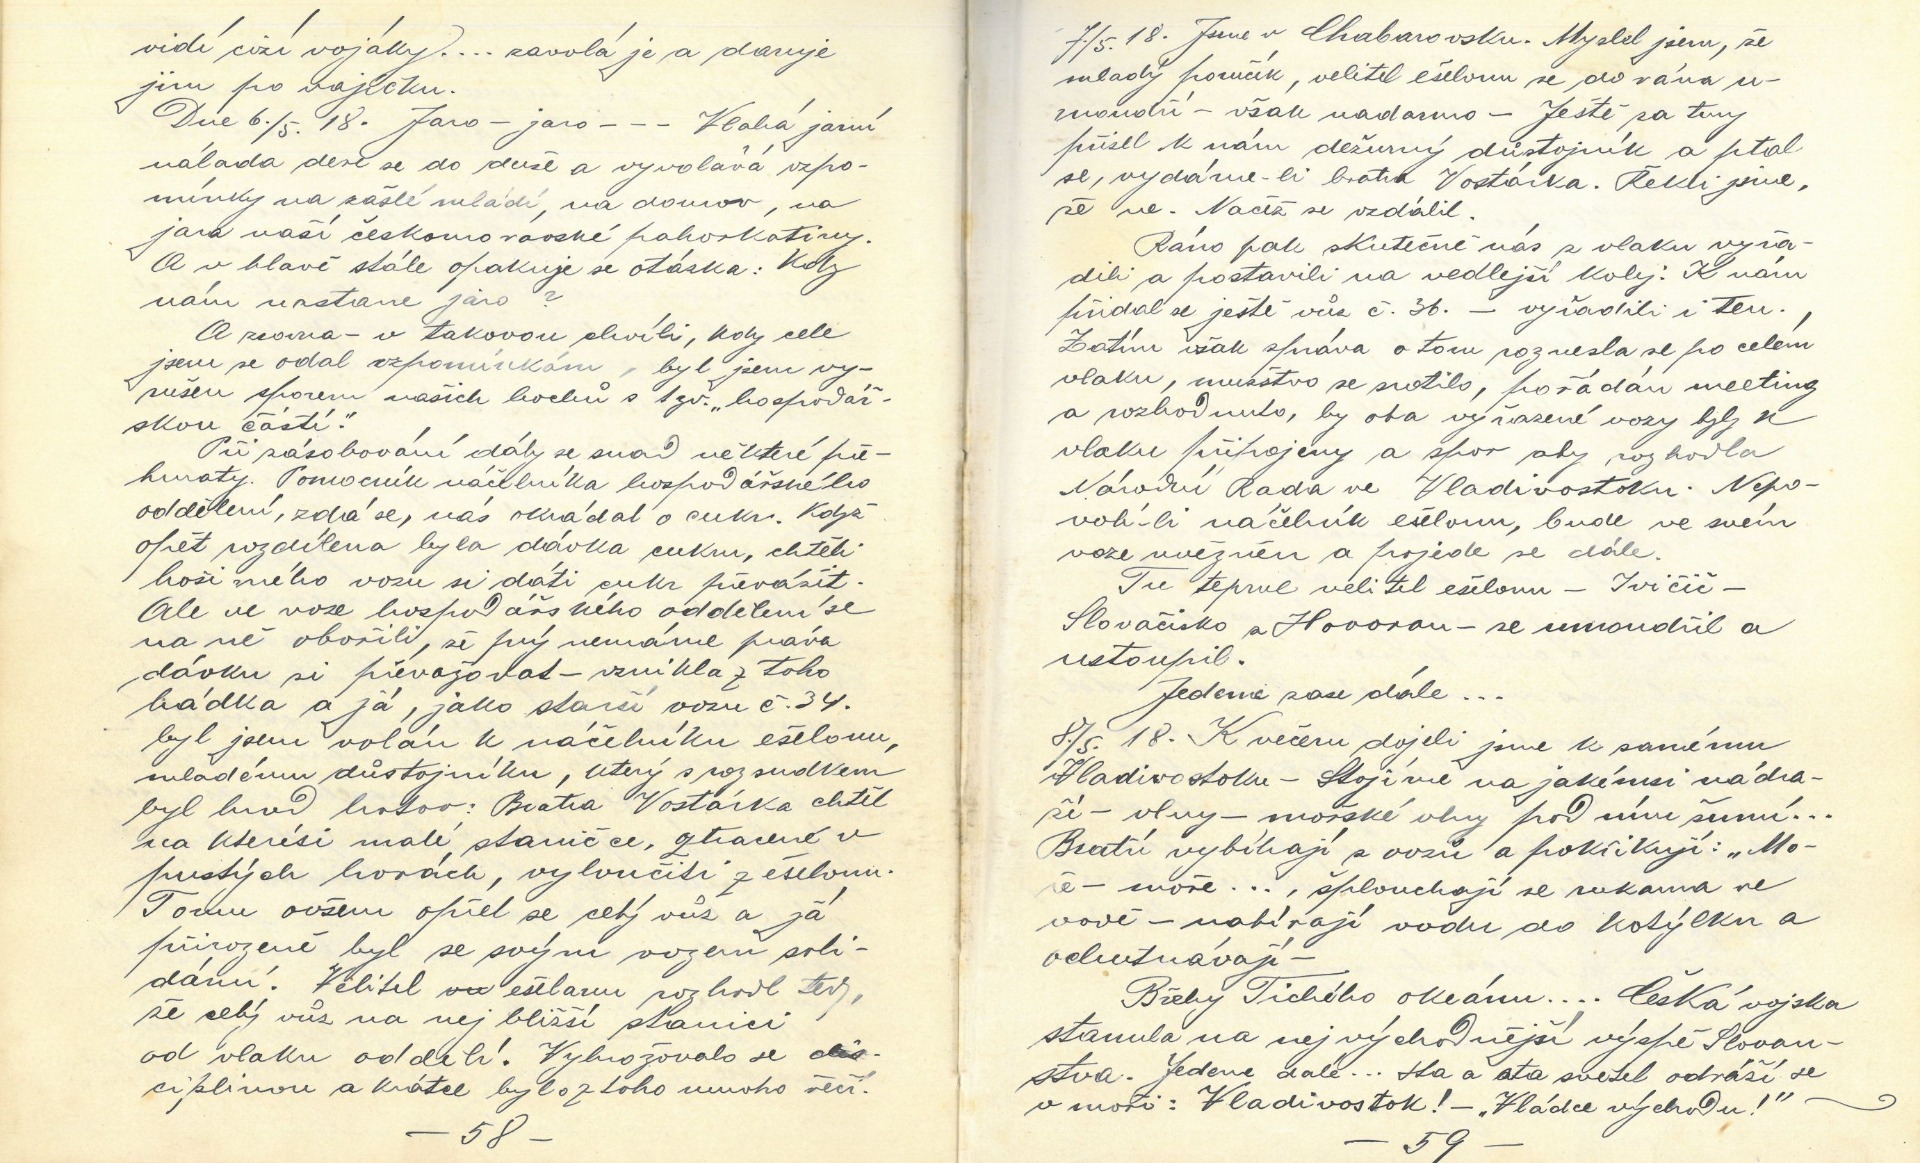 vidí cizí vojáky?.... zavolá je a daruje
jim po vajíčku.
Dne 6./5. 18. Jaro – jaro – – – Vlahá jarní
nálada dere se do duše a vyvolává vzpo-
mínky na zašlé mládí, na domov, na
jara naší českomoravské pahorkatiny.
A v hlavě stále opakuje se otázka: Kdy
nám nastane jaro?
A zrovna – v takovou chvíli, kdy cele
jsem se odal vzpomínkám, byl jsem vy-
rušen sporem našich hochů s tzv. „hospodář-
skou částí."
Při zásobování dály se snad některé pře-
hmaty. Pomocník náčelníka hospodářského
oddělení, zdá se, nás okrádal o cukr. Když
opět rozdílena byla dávka cukru, chtěli
hoši mého vozu si dáti cukr převážit.
Ale ve voze hospodářského oddělení se
na ně obořili, že prý nemáme práva
dávku si převažovat – vznikla z toho
hádka a já, jako starší vozu č. 34.
byl jsem volán k náčelníku ešelonu,
mladému důstojníku, který s rozsudkem
byl hned hotov: Bratra Vostárka chtěl
na kterési malé staničce, ztracené v
pustých horách, vyloučiti z ešelonu.
Tomu ovšem opřel se celý vůz a já
přirozeně byl se svým vozem soli-
dární. Velitel ešelonu rozhodl tedy,
že celý vůz na nejbližší stanici
od vlaku oddělí. Vyhrožovalo se dis-
ciplinou a krátce bylo z toho mnoho řečí.
– 58 –
7/5. 18. Jsme v Chabarovsku. Myslel jsem, že
mladý poručík, velitel ešelonu se do rána u-
moudří – však nadarmo – Ještě za tmy
přišel k nám dežurný důstojník a ptal
se, vydáme-li bratra Vostárka. Řekli jsme,
že ne. Načež se vzdálil.
Ráno pak skutečně nás z vlaku vyřa-
dili a postavili na vedlejší kolej. K nám
přidal se ještě vůz č. 36. – vyřadili i ten.
Zatím však zpráva o tom roznesla se po celém
vlaku, mužstvo se srotilo, pořádán meeting
a rozhodnuto, by oba vyřazené vozy byly k
vlaku připojeny a spor aby rozhodla
Národní Rada ve Vladivostoku. Nepo-
volí-li náčelník ešelonu, bude ve svém
voze uvězněn a pojede se dále.
Tu teprve velitel ešelonu – Ivičič –
Slováčisko z Hovoran – se umoudřil a
ustoupil.
Jedeme zase dále ...
8/5. 18. K večeru dojeli jsme k samému
Vladivostoku – Stojíme na jakémsi nádra-
ží – vlny – mořské vlny pod ním šumí...
Bratři vybíhají z vozů a pokřikují: „Mo-
ře – moře..., šplouchají se rukama ve
vodě – nabírají vodu do kotýlku a
ochutnávají –
Břehy Tichého okeánu.... Česká vojska
stanula na nejvýchodnější výspě Slovan-
stva. Jedeme dále... sta a sta světel odráží se
v moři: Vladivostok! – „Vládce východu!"
– 59 –